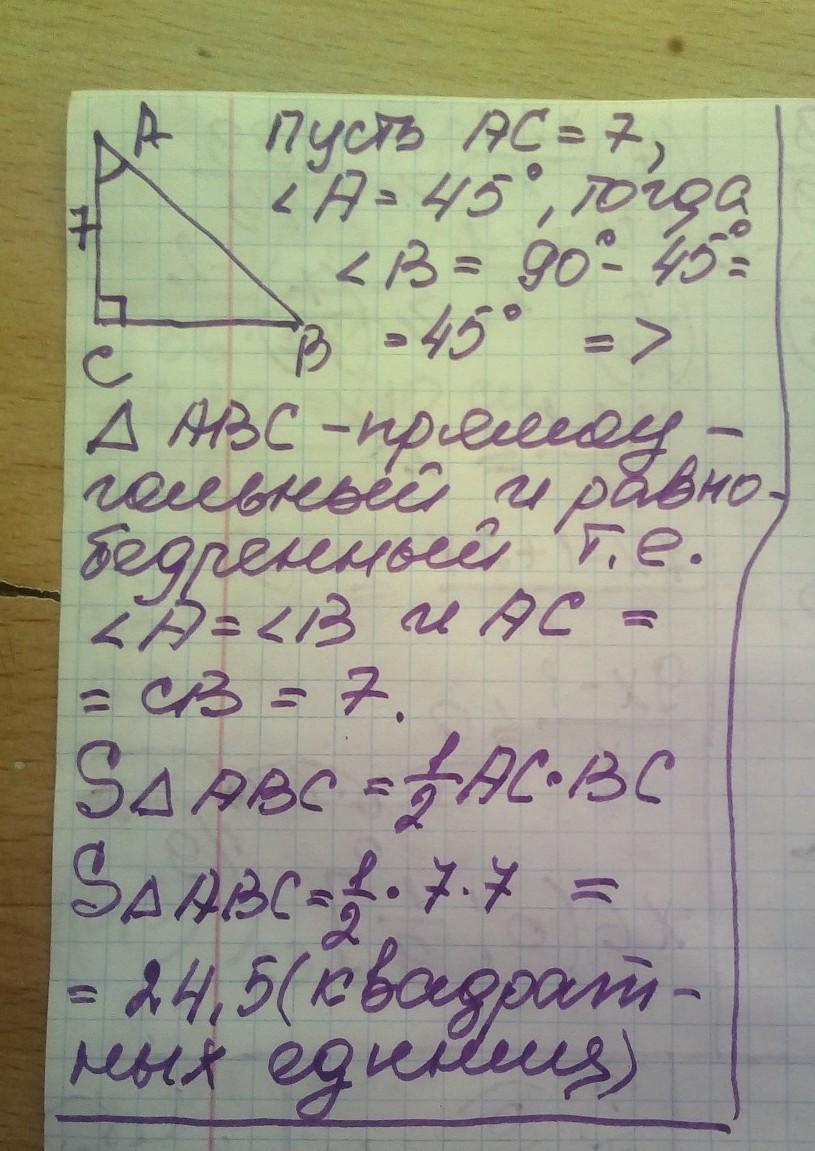 A
7
C
B
Пусть AC = 7,
∠A = 45°, тогда
∠B = 90° - 45° =
= 45° =>
Δ ABC - прямоу -
гольный и равно -
бедренный т.е.
∠A = ∠B и AC =
= CB = 7.
SΔABC = 1/2 AC · BC
SΔABC = 1/2 · 7 · 7 =
= 24,5 (квадрат -
ных единиц)